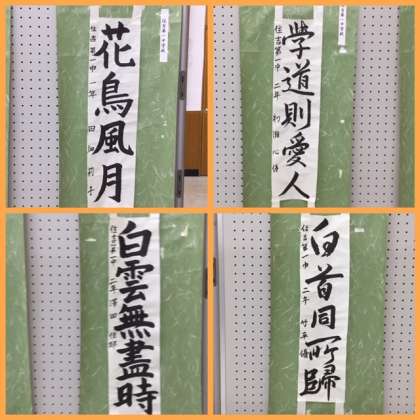 花鳥風月
住吉第一中 一年
学道則愛人
住吉第一中 二年
白雲無盡時
住吉第一中 二年 澤田
白首同所歸
住吉第一中 二年 竹平